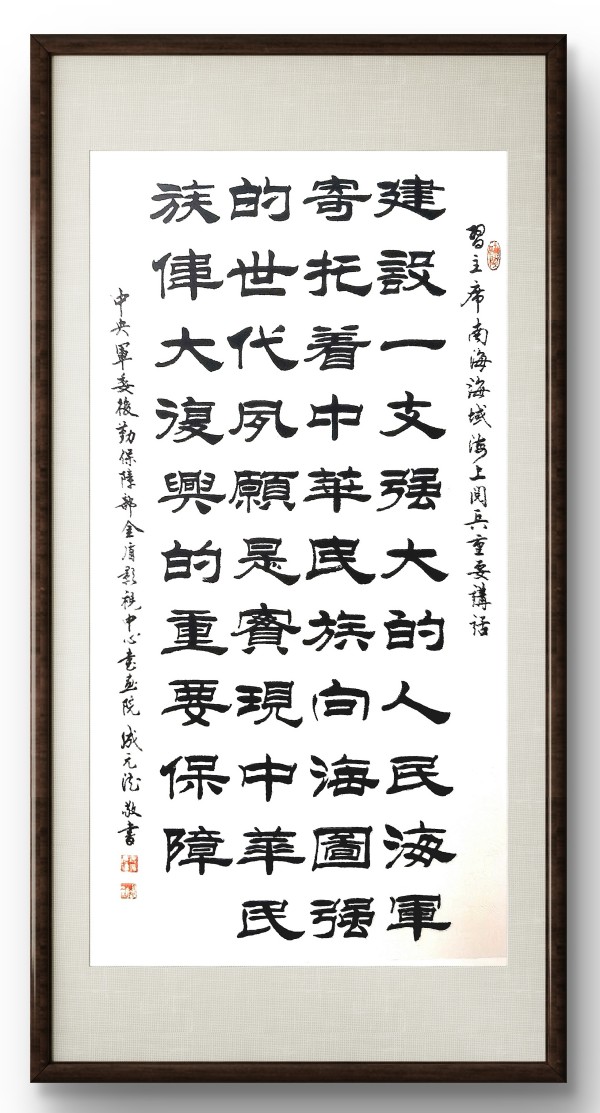 習主席南海海域海上閱兵重要講話
建設一支强大的人民海軍
寄托着中華民族向海圖强
的世代夙願是實現中華民
族偉大復興的重要保障
中央軍委後勤保障部金盾影視中心書畫院 成元 敬書